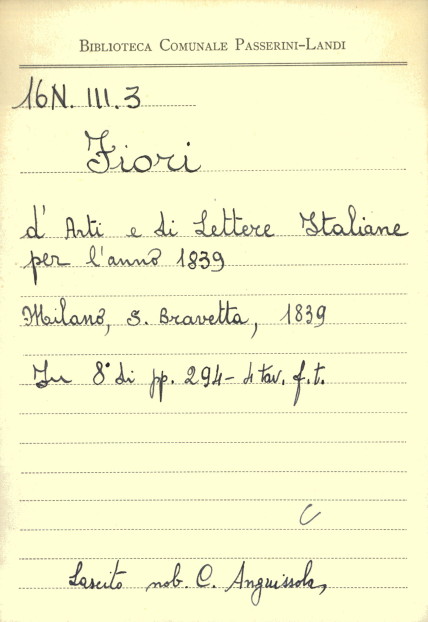 BIBLIOTECA COMUNALE PASSERINI-LANDI
16N. III. 3
Fiori
d' Arti e di Lettere Italiane
per l'anno 1839
Milano, S. Bravetta, 1839
In 8° di pp. 294 - 4 tav. f.t.
C
Lascito nob. C. Anguissola,